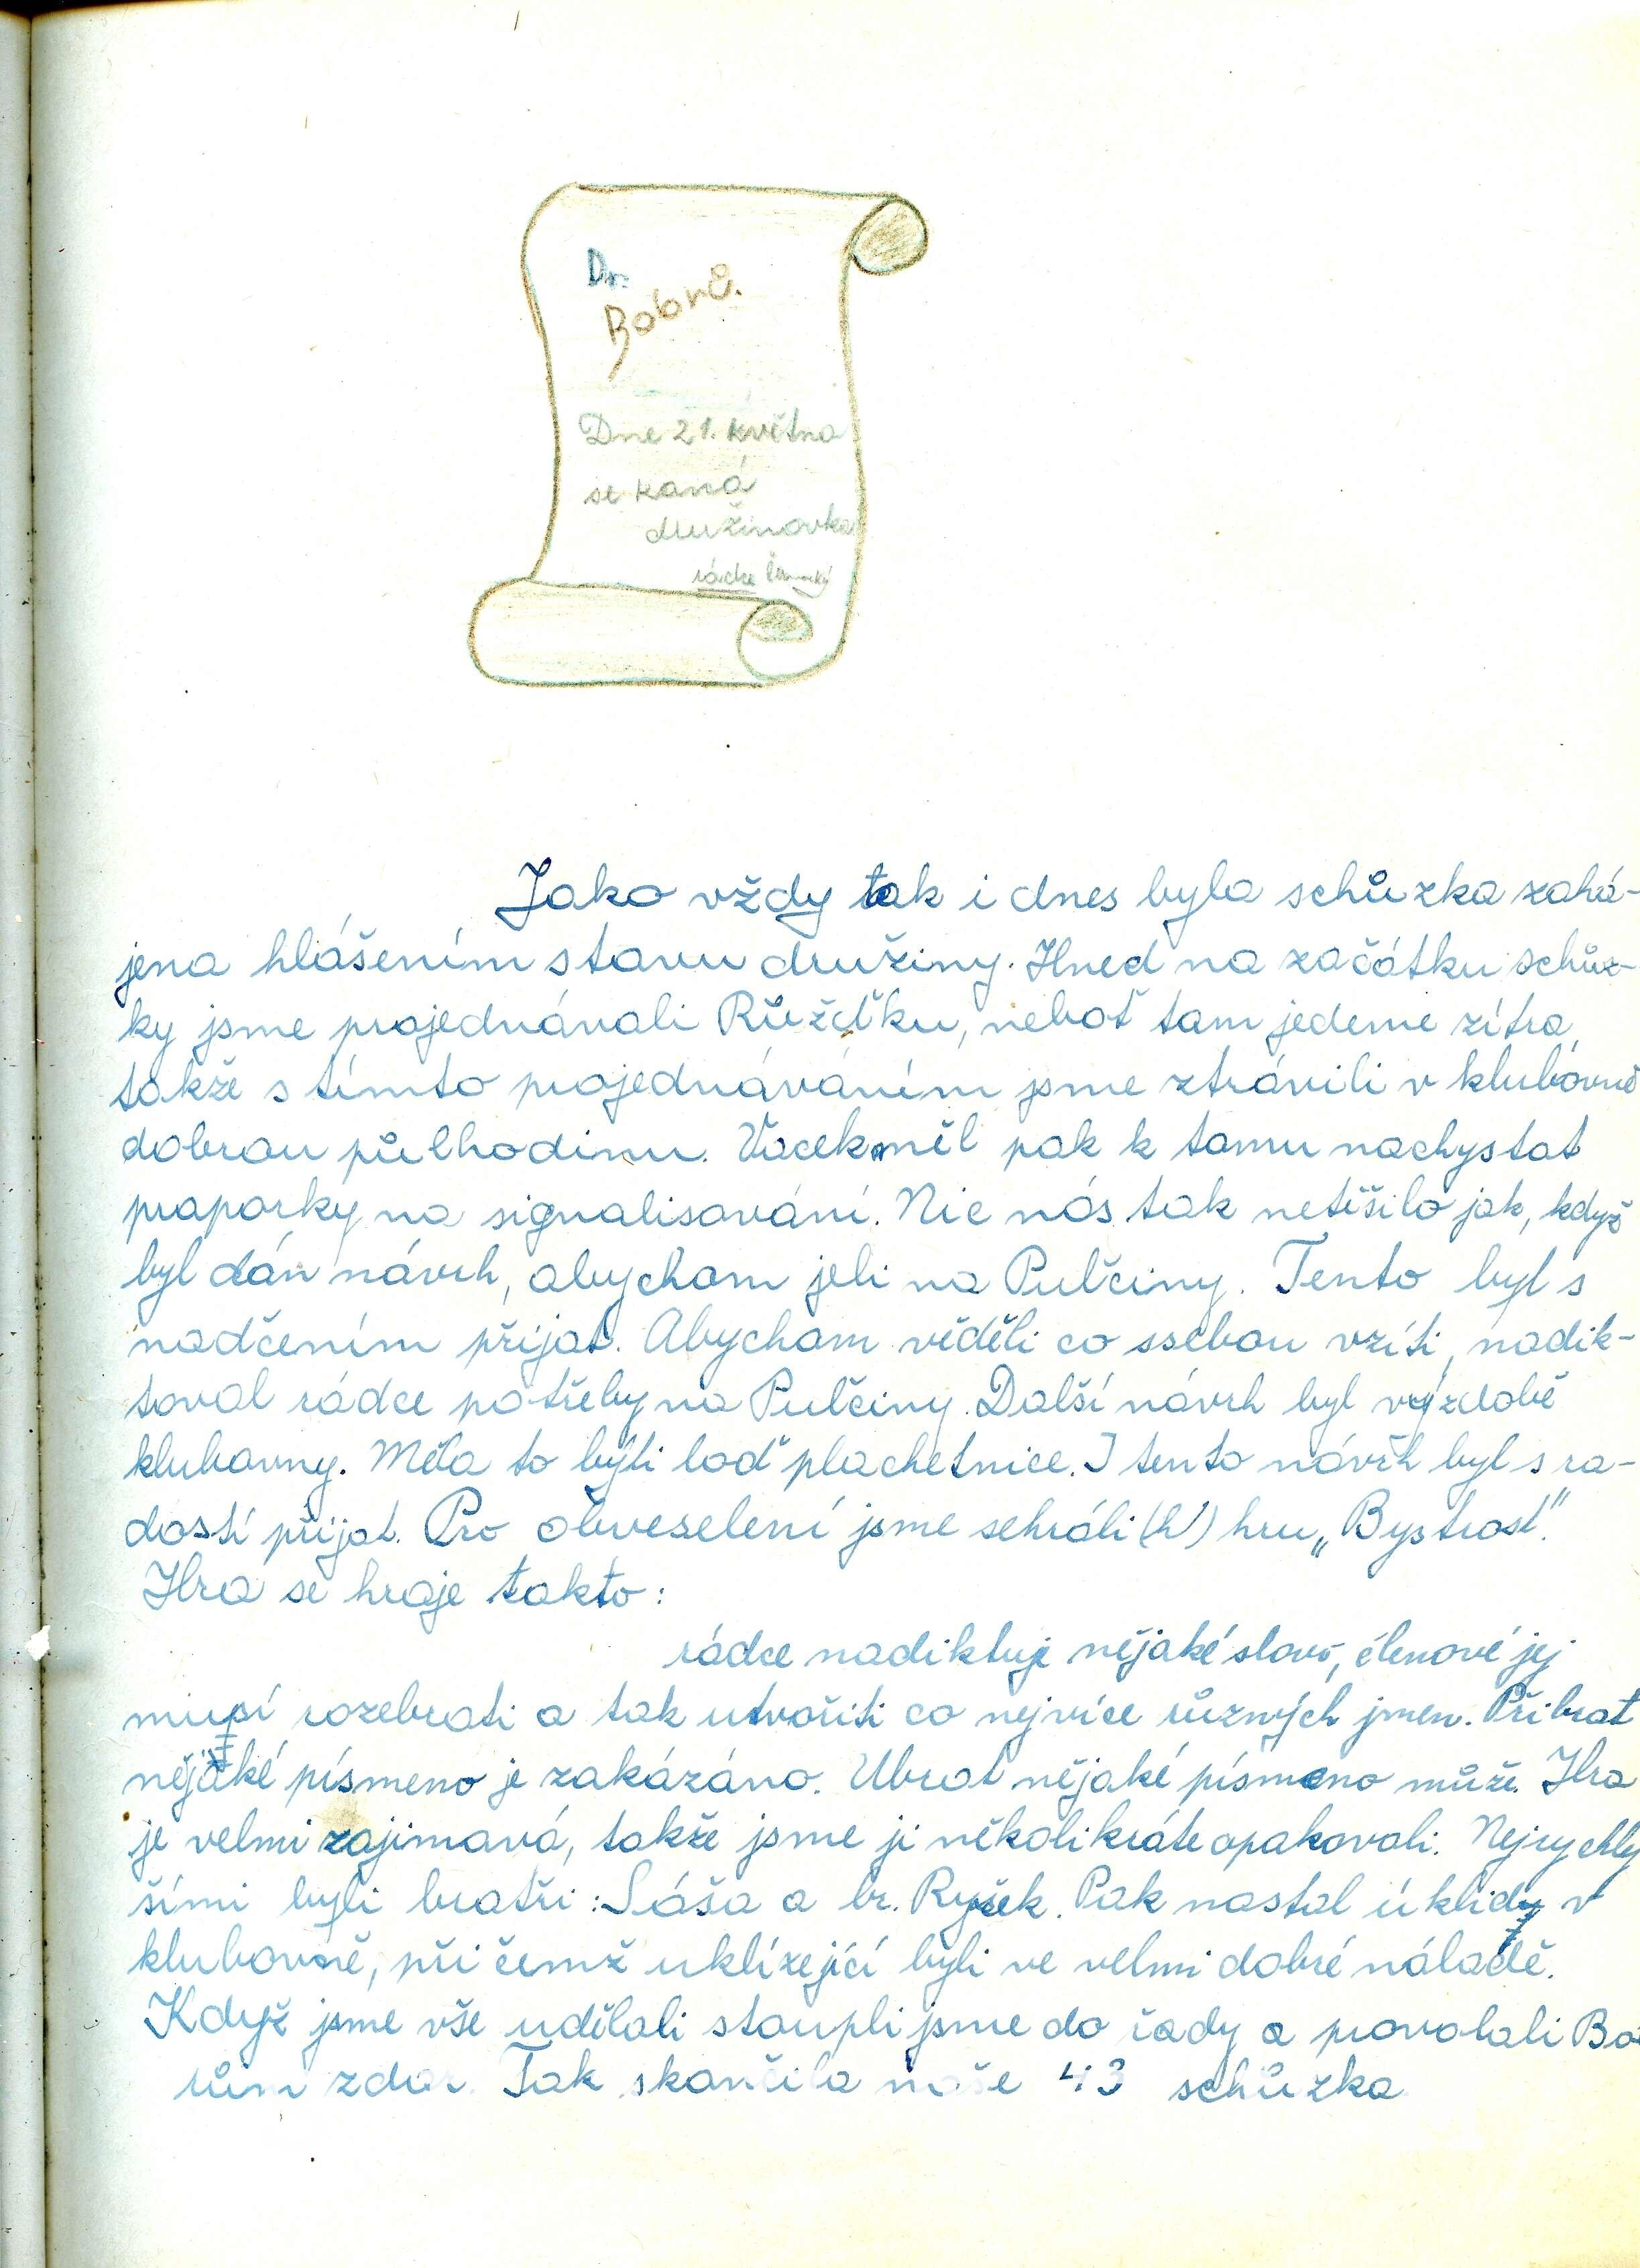 Dr.
Bobrů.
Dne 21. května
se koná
družinovka
rádce
Jako vždy tak i dnes byla schůzka zahá-
jena hlášením stavu družiny. Hned na začátku schůz-
ky jsme projednávali Růžďku, neboť tam jedeme zítra,
takže s tímto projednáváním jsme ztrávili v klubovně
dobrou půlhodinu. Vacek měl pak k tomu nachystat
praporky na signalisování. Nic nás tak netěšilo jak, když
byl dán návrh, abychom jeli na Pulčiny. Tento byl s
nadčením přijat. Abychom věděli co ssebou vzíti, nadik-
toval rádce potřeby na Pulčiny. Další návrh byl výzdobě
klubovny. Měla to býti loď plachetnice. I tento návrh byl s ra-
dostí přijat. Pro obveselení jsme sehráli (h) hru „Bystrost".
Hra se hraje takto:
rádce nadiktuje nějaké slovo, členové jej
musí rozebrati a tak utvořiti co nejvíce různých jmen. Přibrat
nějaké písmeno je zakázáno. Ubrat nějaké písmeno může. Hra
je velmi zajímavá, takže jsme ji několikráte opakovali. Nejrychlej
šími byli bratři: Sáša a br. Ryšek. Pak nastal úklid v
klubovně, při čemž uklízející byli ve velmi dobré náladě.
Když jsme vše udělali stoupli jsme do řady a provolali Bob
rům zdar. Tak skončila naše 43 schůzka